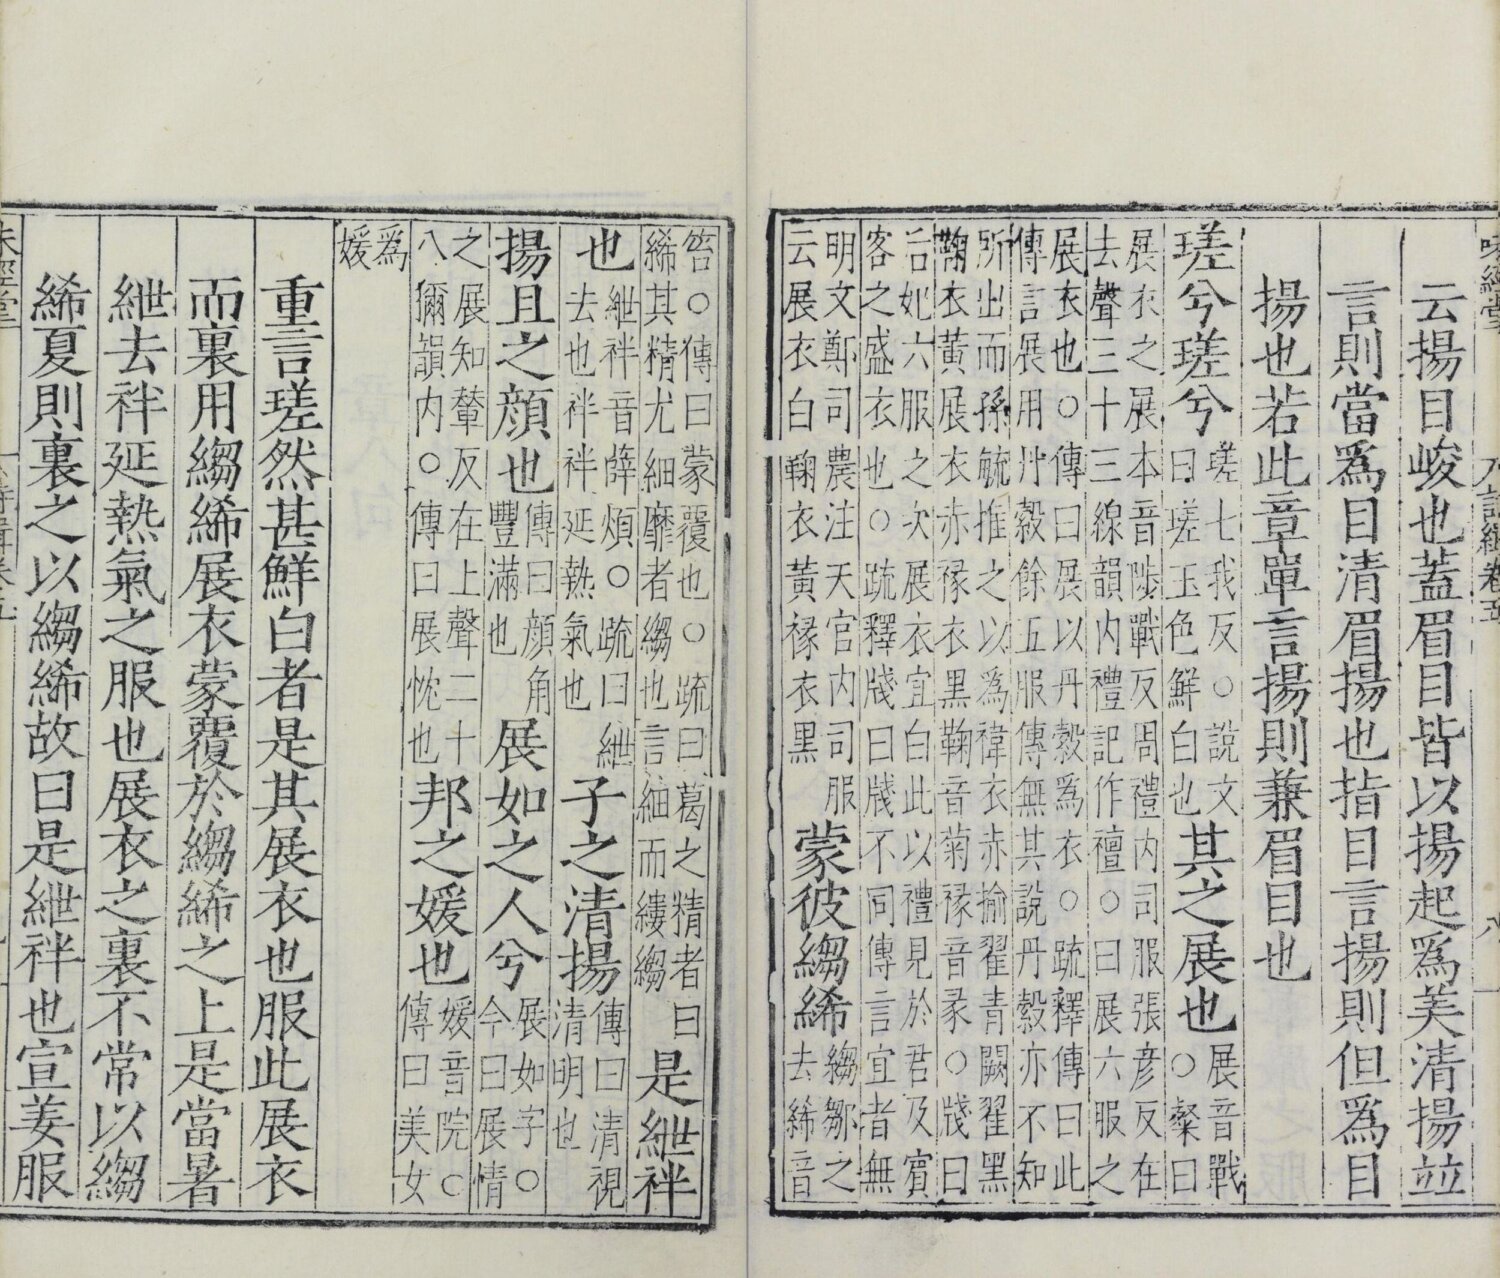 味經堂
詩緝卷五
八
云揚目峻也蓋眉目皆以揚起爲美清揚竝
言則當爲目清眉揚也指目言揚則但爲目
揚也若此章單言揚則兼眉目也
瑳兮瑳兮瑳七我反○說文曰瑳玉色鮮白也其之展也展音戰○粲曰
展衣之展本音陟戰反周禮內司服張彥反在
去聲三十三線韻內禮記作襢○曰展六服之
展衣也○傳曰展以丹縠爲衣○疏釋傳曰此
傳言展用丹縠餘五服傳無其說丹縠亦不知
所出而孫毓推之以爲褘衣赤揄翟青闕翟黑
鞠衣黃展衣赤褖衣黑鞠音菊褖音彖○牋曰
后妃六服之次展衣宜白此以禮見於君及賓
客之盛衣也○疏釋牋曰牋不同傳言宜者無
明文鄭司農注天官內司服云展衣白鞠衣黃褖衣黑蒙彼縐絺縐鄒之去絺音
笞○傳曰蒙覆也○疏曰葛之精者曰絺其精尤細靡者縐也言紬而縷縐是紲袢
也紲袢音薛煩○疏曰紲去也袢袢延熱氣也子之清揚傳曰清視清明也
揚且之顏也傳曰顏角豐滿也展如之人兮展如字○今曰展情
之展知輦反在上聲二十八彌韻內○傳曰展忱也邦之媛也媛音院○傳曰美女
爲媛
重言瑳然甚鮮白者是其展衣也服此展衣
而裏用縐絺展衣蒙覆於縐絺之上是當暑
紲去袢延熱氣之服也展衣之裏不常以縐
絺夏則裏之以縐絺故曰是紲袢也宣姜服